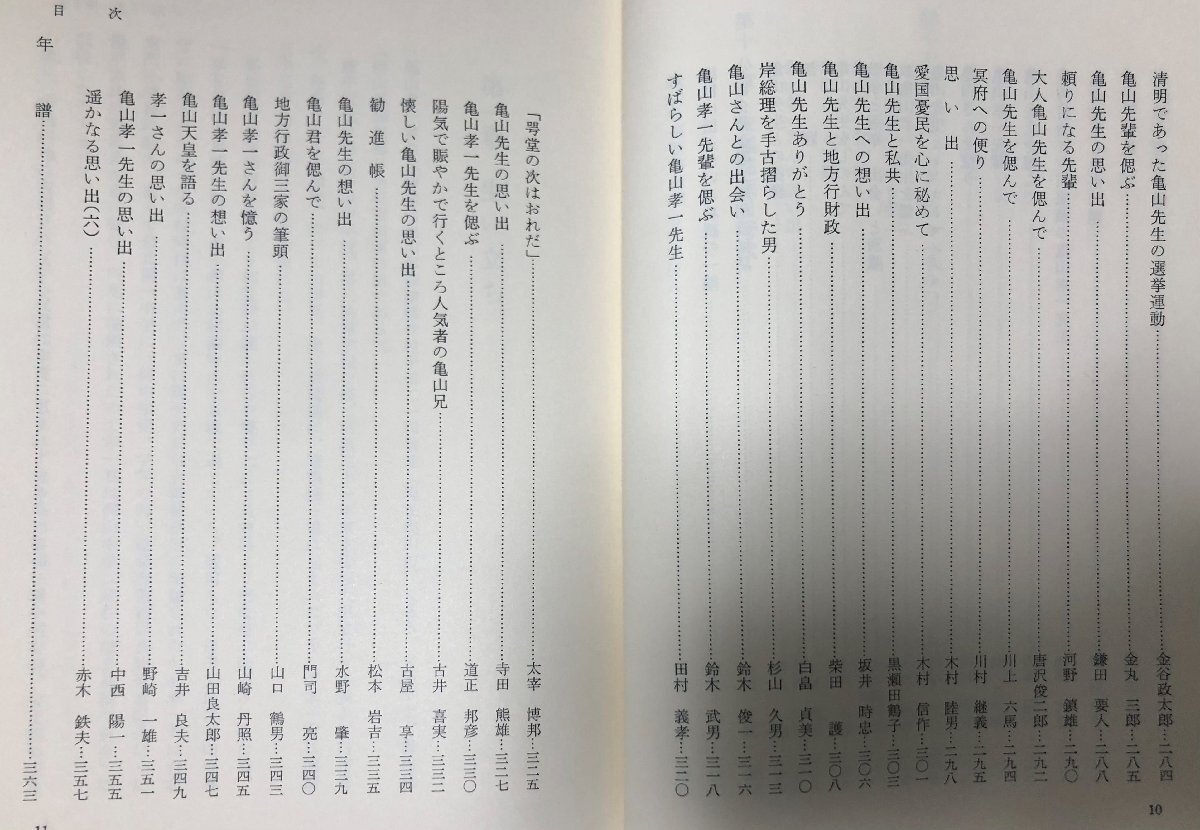 清明であった亀山先生の選挙運動……金谷政太郎…二八四
亀山先輩を偲ぶ……金丸 三郎…二八五
亀山先生の思い出……鎌田 要人…二八八
頼りになる先輩……河野 鎮雄…二九〇
大人亀山先生を偲んで……唐沢俊二郎…二九二
亀山先生を偲んで……川上 六馬…二九四
冥府への便り……川村 継義…二九五
思い出……木村 睦男…二九八
愛国憂民を心に秘めて……木村 信作…三〇一
亀山先生と私共……黒瀬田鶴子…三〇三
亀山先生への想い出……坂井 時忠…三〇六
亀山先生と地方行財政……柴田 護…三〇八
亀山先生ありがとう……白畠 貞美…三一〇
岸総理を手古摺らした男……杉山 久男…三一三
亀山さんとの出会い……鈴木 俊一…三一六
亀山孝一先輩を偲ぶ……鈴木 武男…三一八
すばらしい亀山孝一先生……田村 義孝…三二〇
10
「咢堂の次はおれだ」……太幸 博邦…三二五
亀山先生の思い出……寺田 熊雄…三二七
亀山孝一先生を偲ぶ……道正 邦彦…三三〇
陽気で賑やかで行くところ人気者の亀山兄……古井 喜実…三三二
懐しい亀山先生の思い出……古屋 享…三三四
勧進帳……松本 岩吉…三三五
亀山先生の想い出……水野 肇…三三九
亀山君を偲んで……門司 亮…三四〇
地方行政御三家の筆頭……山口 鶴男…三四三
亀山孝一さんを憶う……山崎 丹照…三四五
亀山孝一先生の想い出……山田良太郎…三四七
亀山天皇を語る……吉井 良夫…三四九
孝一さんの思い出……野崎 一雄…三五一
亀山孝一先生の思い出……中西 陽一…三五五
遥かなる思い出(六)……赤木 鉄夫…三五七
年譜……三六三
目次
11